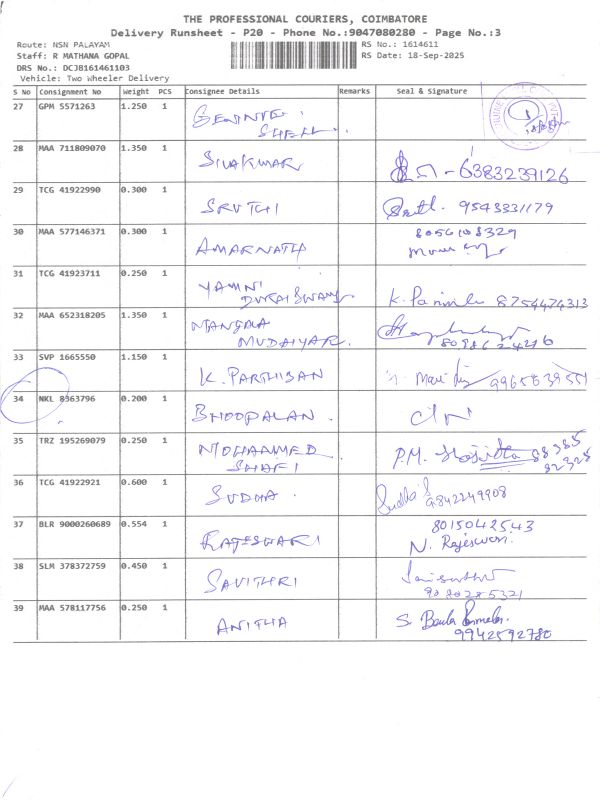 THE PROFESSIONAL COURIERS, COIMBATORE
Delivery Runsheet - P20 - Phone No.:9047080280 - Page No.:3
Route: NSN PALAYAM
RS No.: 1614611
Staff: R MATHANA GOPAL
RS Date: 18-Sep-2025
DRS No.: DCJB161461103
Vehicle: Two Wheeler Delivery
S No Consignment No Weight PCS Consignee Details Remarks Seal & Signature
27 GPM 5571263 1.250 1
SHELL
28 MAA 711809070 1.350 1
SIVAKUMAR 6383239126
29 TCG 41922990 0.300 1
SRUTHI 9543331179
30 MAA 577146371 0.300 1
AMARNATH 8056108329
31 TCG 41923711 0.250 1
YAMNI
DURAISWAMY K. 8754474313
32 MAA 652318205 1.350 1
MANGALA
MUDALYAR.
33 SVP 1665550 1.150 1
K. PARTHIBAN
34 NKL 8363796 0.200 1
BHOOPALAN.
35 TRZ 195269079 0.250 1
MOHAMMED
SHAFI P.M.
36 TCG 41922921 0.600 1
SUDHA. Sudha 9842249908
37 BLR 9000260689 0.554 1
8015042543
RAJESHARI N. Rajeswari.
38 SLM 378372759 0.450 1
SAVITHRI
39 MAA 578117756 0.250 1
ANITHA S.
9942592780